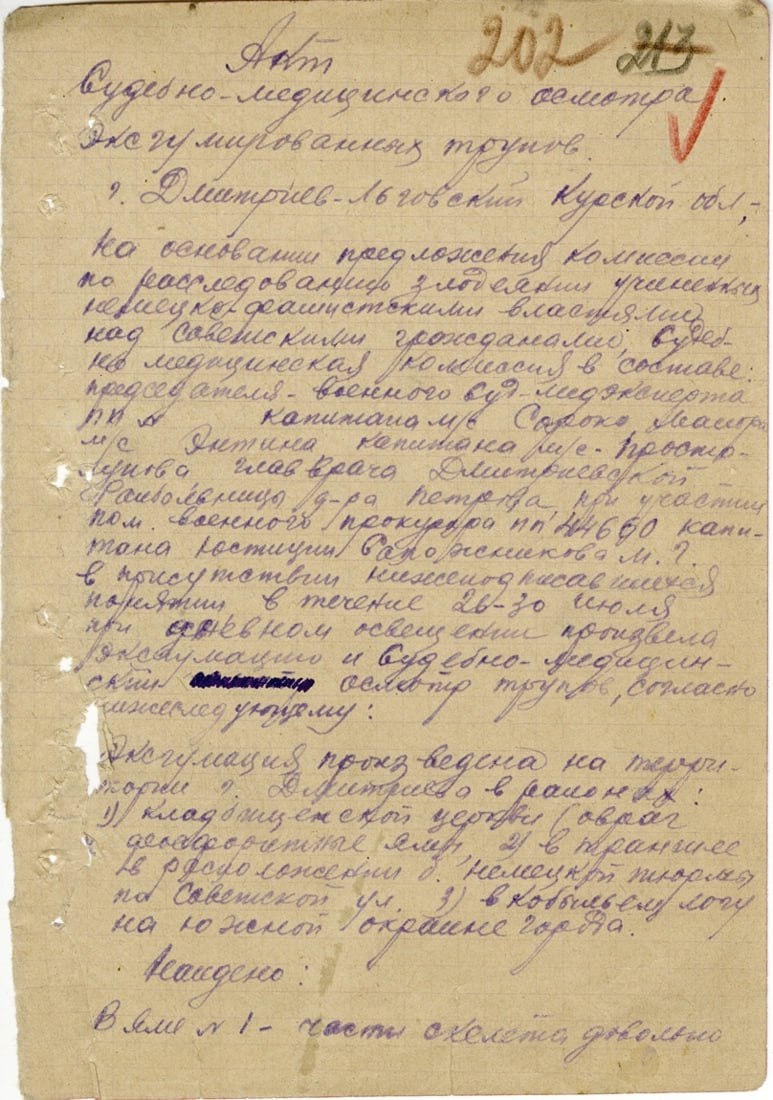 202 213
Акт
Судебно-медицинского осмотра
Эксгумированных трупов.
г. Дмитриев-Льговский Курской обл,
На основании предложения комиссии
по расследованию злодеяний учиненных
немецко-фашистскими властями
над советскими гражданами, судеб-
но медицинская комиссия в составе:
председателя - военного суд-медэксперта
капитана м/с Сороко, Майора
м/с Энтина капитана м/с - Просто-
главврача Дмитриевской
Райбольницы д-ра Петрова, при участии
пом. военного прокурора пп 44660 капи-
тана юстиции Сапожникова М. Г.
в присутствии нижеподписавшихся
понятых в течение 26-30 июля
при дневном освещении произвела
эксгумацию и судебно-медицин-
ский осмотр трупов, согласно
нижеследующему:
Эксгумация произведена на терри-
тории г. Дмитриева в районах:
1) кладбищенской церкви (овраг
ямы, 2) в траншее
в расположении б. немецкой тюрьмы
по Советской ул. 3) в Кобыльем логу
на южной окраине города.
Найдено:
В яме № 1 - части скелета довольно